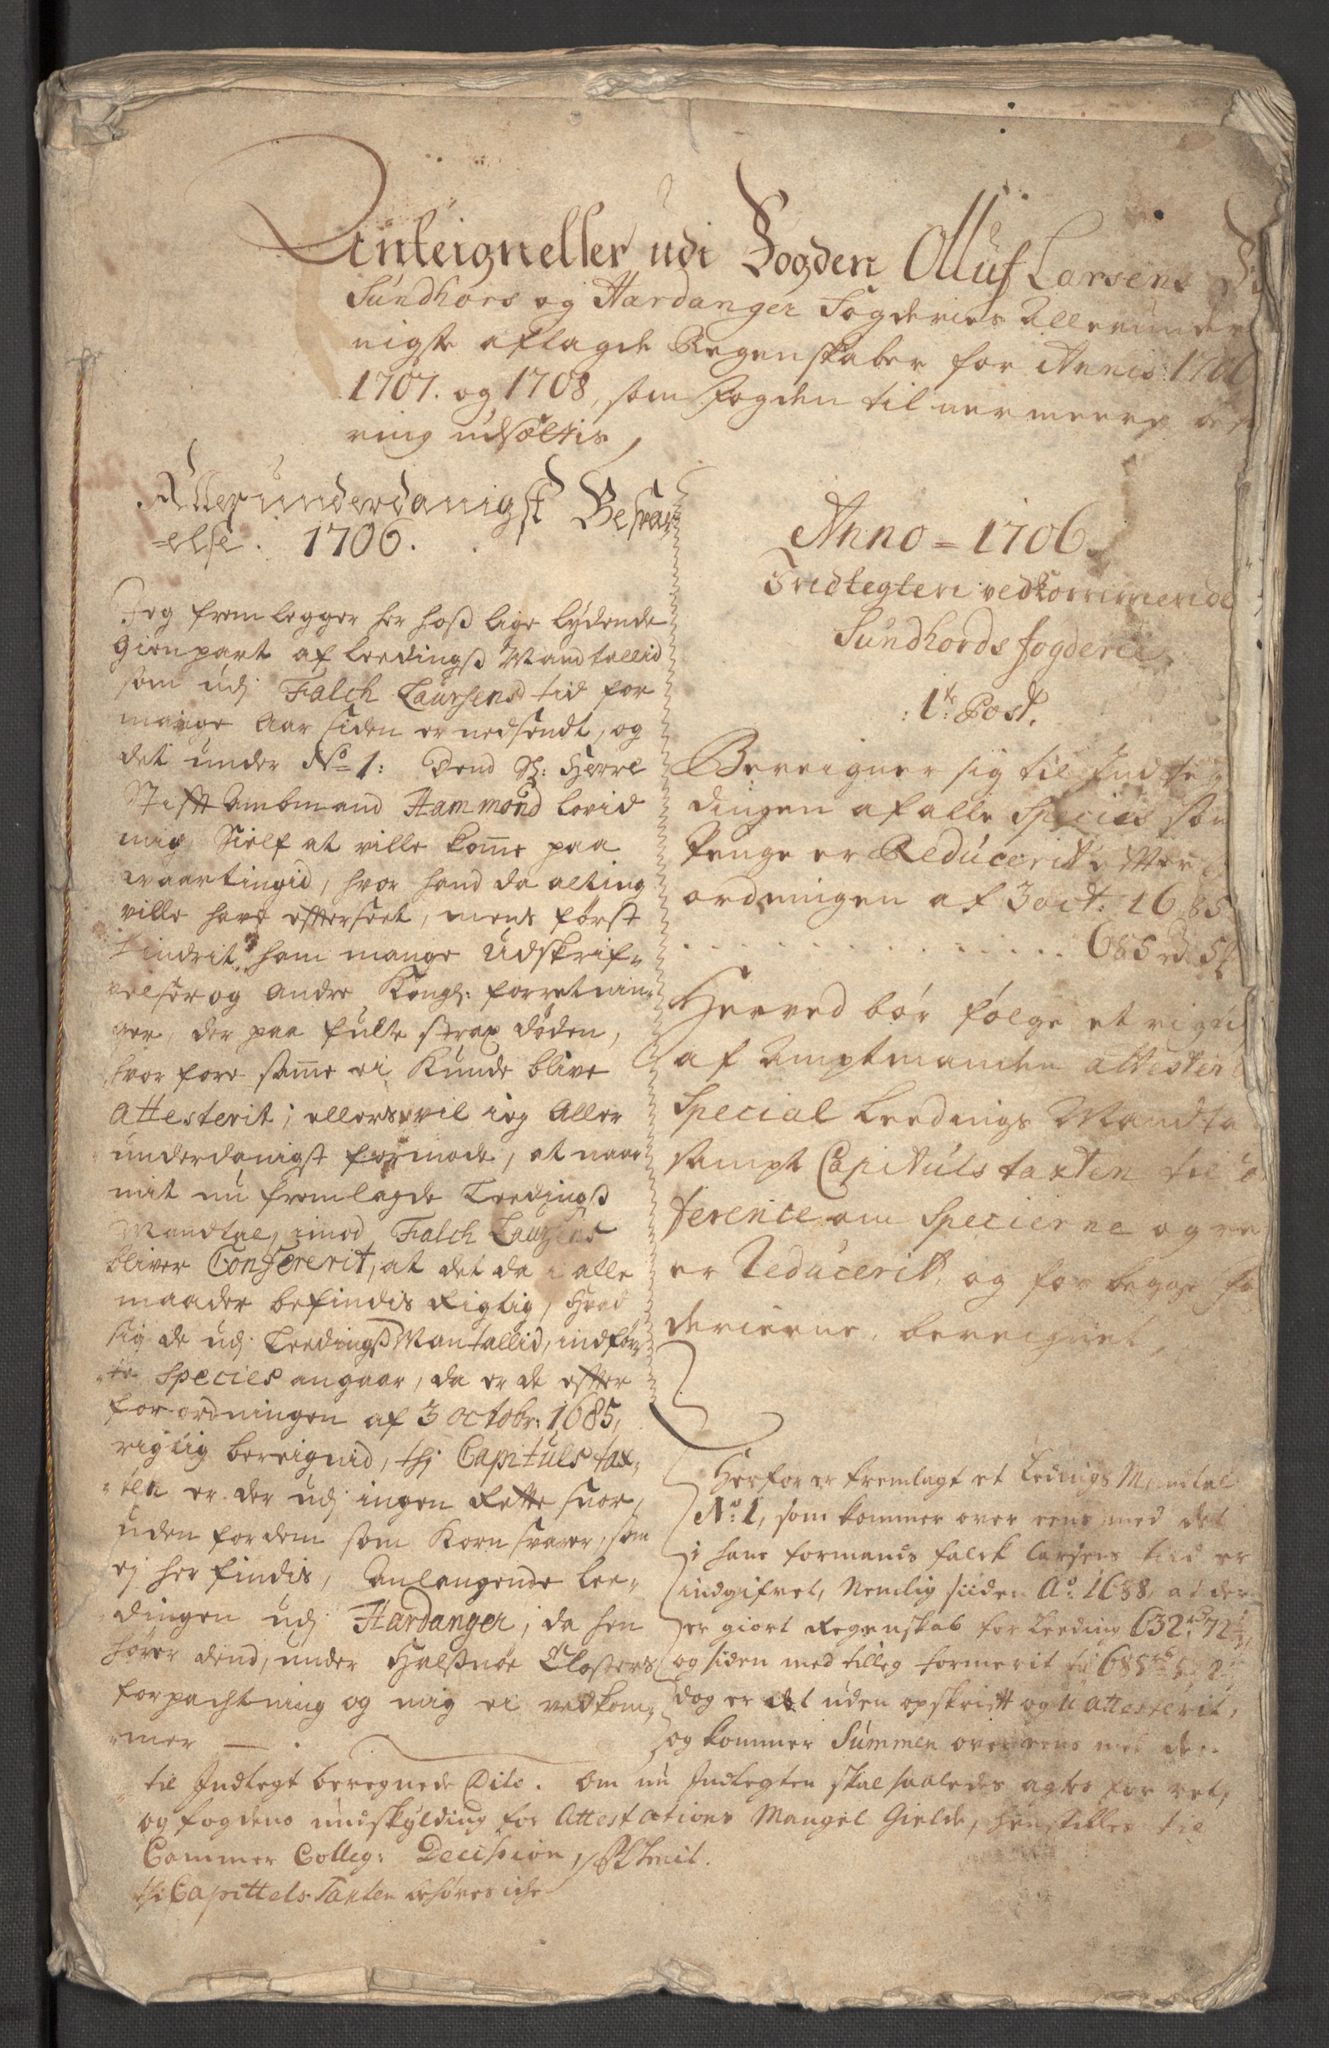 Anteignelser udi Fogden Olluf Larsens
Sundhors og Hardanger Fogderies Allerunder
nigste aflagde Regenskaber for Annis: 1706
1707. og 1708, som Fogden til nermeere
ring udsættis,
Allerunderdanigst Besvar
-else. 1706.
Jeg fremlegger her hoss lige lydende
Gienpart af Leedingss Mandtallid
som udj Falch Laursens tid for
mange Aar siden er nedsendt, og
det under No 1: Dend Sl: Herre
Stifft Ambmand Hammond lovid
mig Sielf at ville komme paa
waartingid, hvor hand da alting
ville have efterseet, mens først
hindrit ham mange Udskrif-
velser og andre Kongl: forretnin-
ger, der paa fulte strax døden,
hvor fore samme ei Kunde blive
Attesterit; ellers vil ieg Aller
underdanigst formode, at naar
mit nu fremlagde Leedingss
Mandtal, imod Falch Laursens
bliver Confererit, at det da i alle
maader befindis Rigtig, Hvad
sig de udj Leedingss Mantallid, indfør-
te Species angaar, da er de efter
forordningen af 3 octobr: 1685,
rigtig bereignid, thj Capituls tax-
ten er der udj ingen Rette snor,
uden for dem som Korn svarer, som
ej her findis, Anlangende Lee-
dingen udj Hardanger, da hen
hører dend, under Halssnøe Closters
forpachtning og mig ei vedkom-
mer —.
Anno = 1706.
Indtegten vedkommende
Sundhords fogderie
:1te: Post.
Bereigner sig til Indte
dingen af alle Species som
penge er Reducerit efter
ordningen af 3 oct: 1685
685 rd 5
Herved bør følge et rigtig
af Amptmanden attesterit
Special Leedings Mandta
sampt Capituls taxten til
ference om Specierne og re
er Reducerit, og for begge fo
derierne, bereignet,
Herfor er fremlagt et Ledings Mandtal
No. 1, som kommer over eens med det
i hans formands falck Larsens tiid er
indgifvet, Nemlig siiden Ao. 1688, at der
er giort Regenskab for Leeding 632 rd 72
og siden med tilleg formerit til 685 rd 5
dog er det uden opskrifft og U attesterit,
og kommer Summen overeens med den
til Indtegt beregnede Dito. Om nu Indtegten skal saaledes agtes for ret,
og fogdens undskylding for Attestations Mangel Gielde, henstilles til
Cammer Colleg: Decision,
thi Capittels Taxten behøves iche